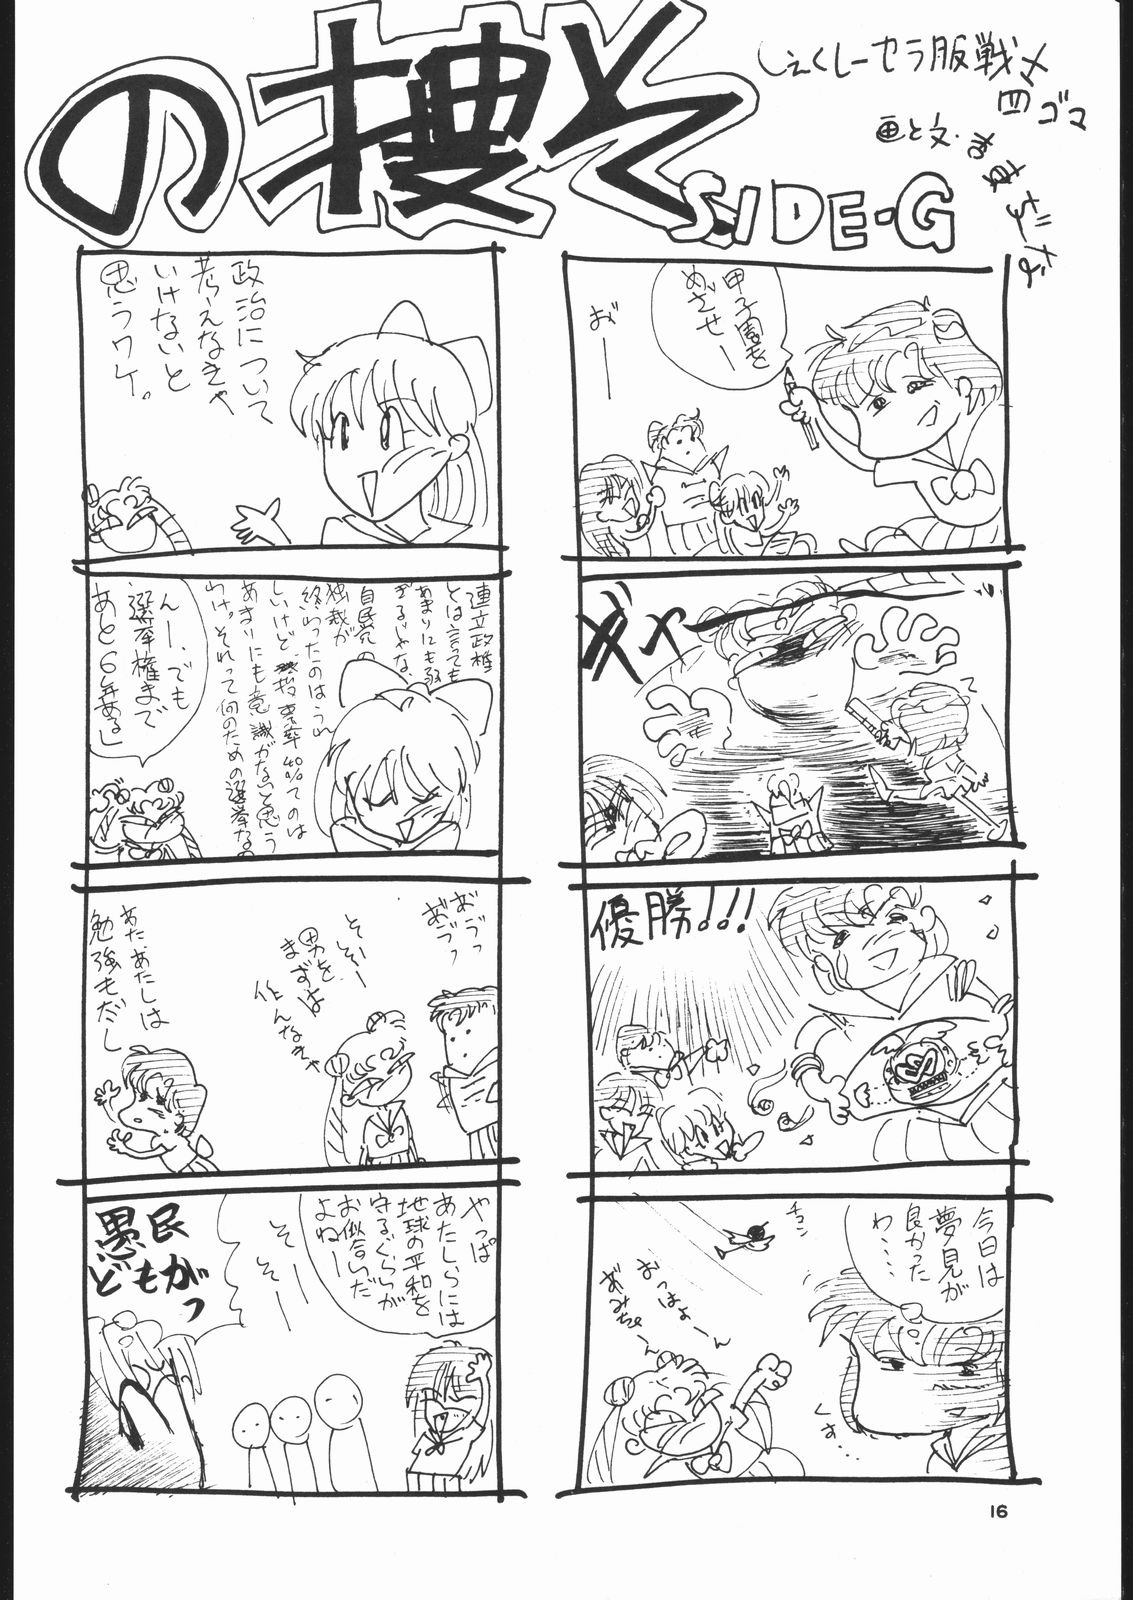 の捜そ
SIDE・G
しぇくしーセラ服戦士
四ゴマ
画と文・
甲子園を
めざせー
おー
ギャー
優勝!!!
今日は
夢見が
良かった
わ‥‥
チュン
おっはよーん
あみちゃーん
くす‥
政治について
考えなきゃ
いけないと
思うワケ。
連立政権
とは言っても
あまりにも
自民党の
独裁が
終わったのはうれ
しいけど投票率40%てのは
あまりにも意識がないと思う
わけ。それって何のための選挙なの
んー、でも
選挙権まで
あと6年ある」
おうっ
おうっ
そ、そー
まずは
男を
作んなきゃ
あた、あたしは
勉強もだし
やっぱ
あたしらには
地球の平和を
守るぐらいが
お似合いだ
よねー
そー
そー
愚民
どもがっ
16